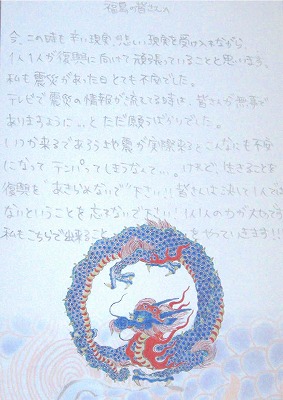 福島の皆さんへ
今、この時も辛い現実、悲しい現実を受け入れながら
1人1人が復興に向けて頑張っていることと思います。
私も震災があった日とても不安でした。
テレビで震災の情報が流れてる時は、皆さんが無事で
ありますように…とただ願うばかりでした。
いつか来るであろう地震が実際来るとこんなにも不安
になってテンパってしまうなんて…。けれど、生きることを
復興を、あきらめないで下さい!! 皆さんは決して1人では
ないということを忘れないで下さい! 1人1人の力が大切です
私もこちらで出来ること をやっていきます!!